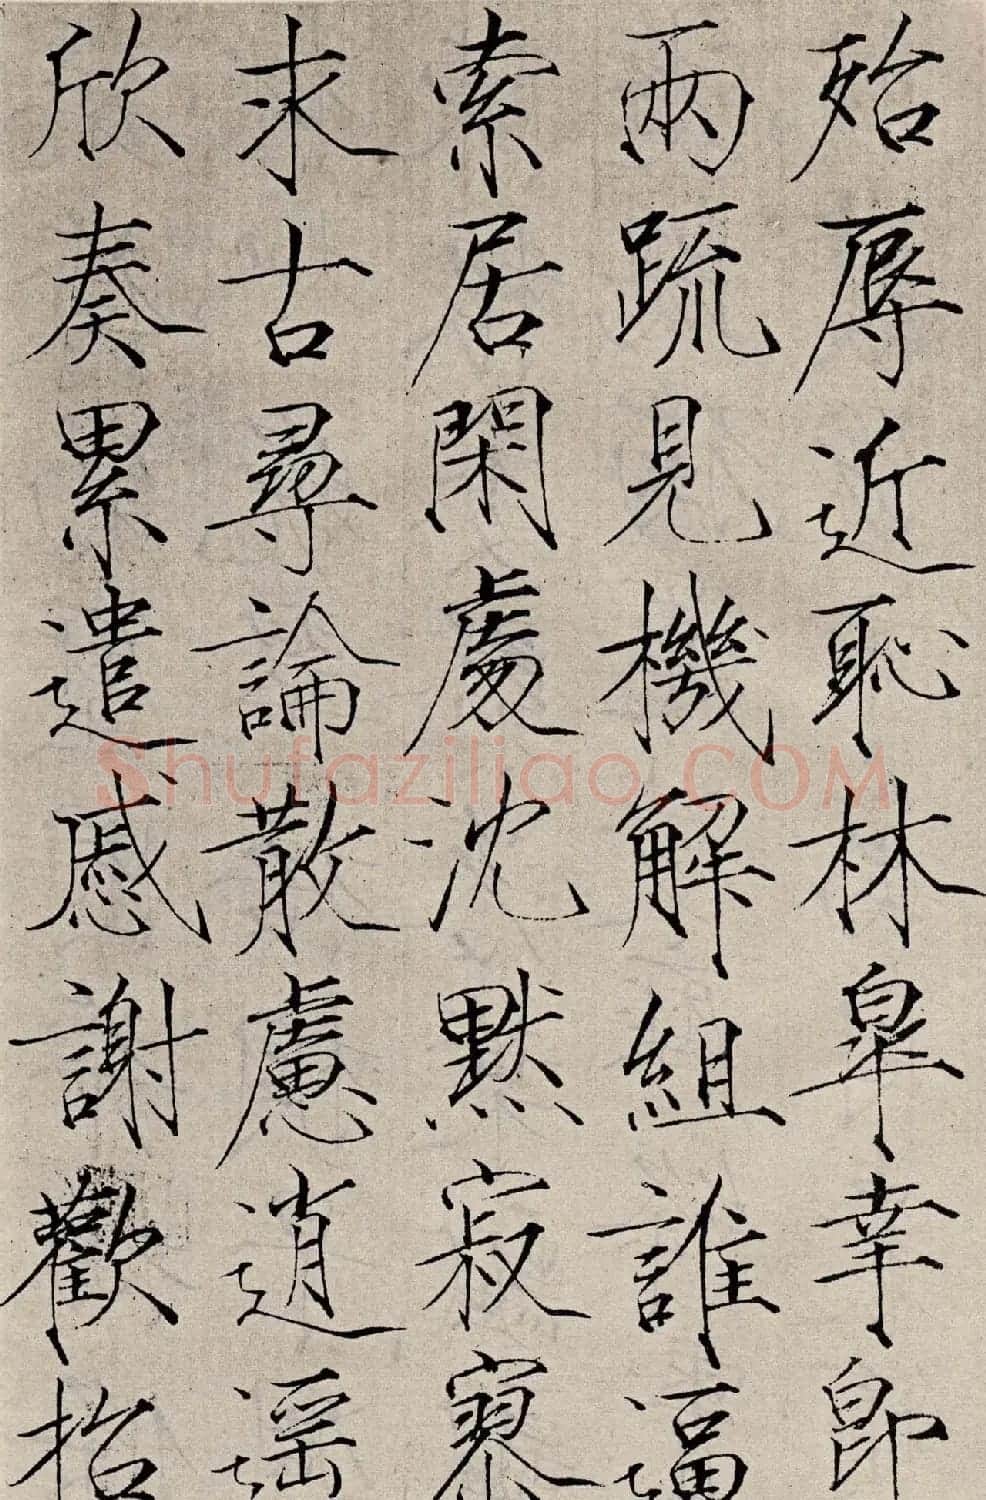 殆辱近恥林皐幸即
兩疏見機解組誰逼
索居閑處沈默寂寥
求古尋論散慮逍遥
欣奏累遣慼謝歡招
Shufaziliao.COM